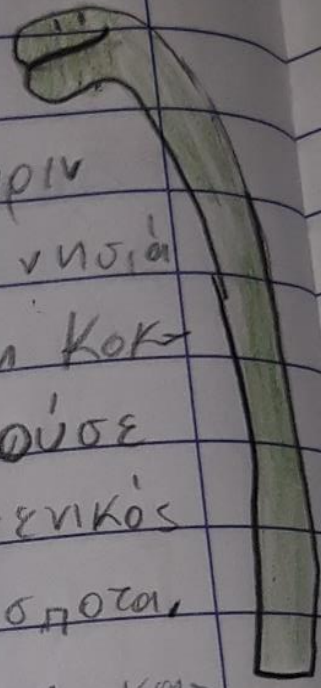 ριν
νησιά
η Κοκ-
ούσε
ενικός
σποτα,